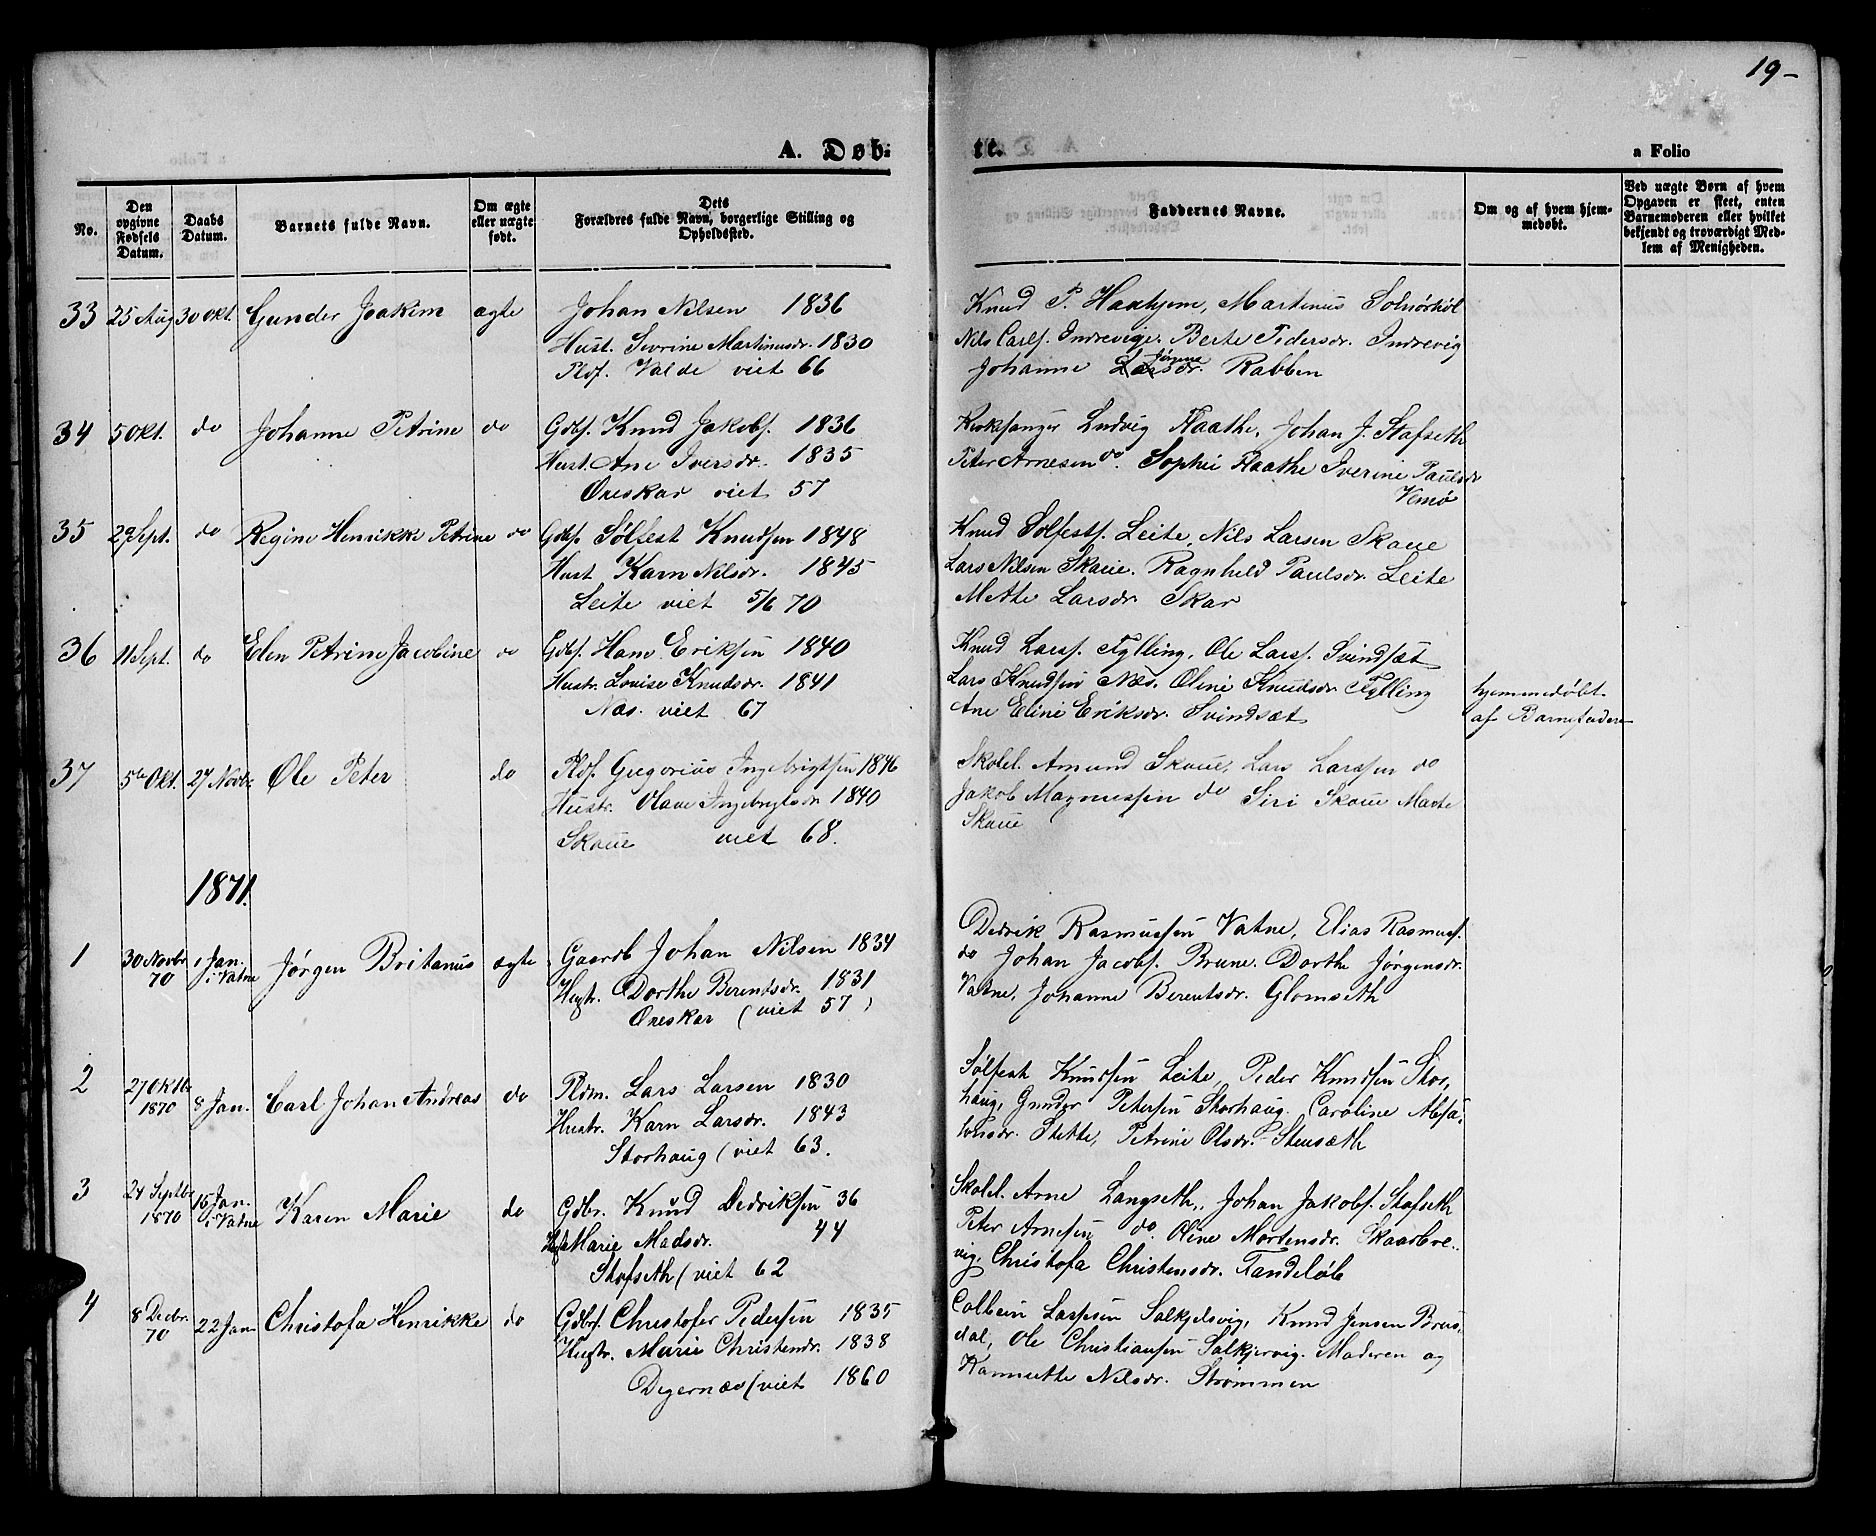 19-
A. Døb-
te.
a Folio
No.
Den opgivne Fødsels Datum.
Daabs Datum.
Barnets fulde Navn.
Om ægte eller uægte født.
Dets Forældres fulde Navn, borgerlige Stilling og Opholdssted.
Faddernes Navne.
Om og af hvem hjemmedøbt.
Ved uægte Børn af hvem Opgaven er skeet, enten Barnemoderen eller hvilket bekjendt og troværdigt Medlem af Menigheden.
33 25 Aug 30 Okt. Gunder Joakim ægte Johan Nilsen 1836
Hust. Sevrine Martinusdr. 1830
Pldf. Valde viet 66
Knud P. Haahjem, Martinus Solnørhol
Nils Carlf. Indrevige. Berte Pedersdr. Indrevig
Johanne Jónna Larsdr. Rabben
34 5 Okt. do Johanne Petrine do Gdbf. Knud Jakobf. 1836
Hust. Ane Iversdr. 1835
Øreskar viet 57
Kirkesanger Ludvig Flaathe, Johan J. Stafseth
Peter Arnesen do. Sophie Flaathe Iverine Paulsdr
Vemø
35 29 Sept. do Regine Henrikke Petrine do Gdbf. Sølfest Knudsen 1848
Hust Karn Nilsdr. 1845
Leite viet 5/6 70
Knud Solfestf. Leite, Nils Larsen Skaue
Lars Nilsen Skaue. Ragnhild Paulsdr. Leite
Methe Larsdr Skar
36 11 Sept. do Elen Petrine Jacobine do Gdbf. Hans Eriksen 1840
Hustr. Lovise Knudsdr. 1841
Næs. viet 67
Knud Larsf. Fylling, Ole Larsf. Svindsæt
Lars Knudsen Næs. Oline Knudsdr Fylling
Ane Eline Eriksdr. Svindsæt
hjemmedøbt
af Barnefaderen
37 5te Okt. 27 Novbr Ole Peter do Pldf. Gregorius Ingebrigtsen 1846
Hustr. Olave Ingebrigtsdr 1840
Skaue viet 68.
Skolel. Amund Skaue, Lars Larssen do
Jakob Magnussen do Siri Skaue Marte
Skaue
1871.
1 30 Novbr 70 1 Jan. i Vatne Jørgen Britanus ægte Gaardb Johan Nilsen 1834
Hustr. Dorthe Berentsdr. 1831
Øreskar (viet 57)
Didrik Rasmussen Vatne, Elias Rasmusf.
do Johan Jacobf. Brune. Dorthe Jørgensdr.
Vatne, Johanne Berentsdr. Glomseth
2 27 Oktbr 1870 8 Jan. Carl Johan Andreas do Pldm. Lars Larsen 1830
Hustr. Karn Larsdr. 1843
Storhaug (viet 63.
Sølfest Knudsen Leite, Peder Knudsen Stor,
haug, Gunder Petersen Storhaug. Caroline Absa,
lonsdr. Stette, Petrine Olsdr. Stensæth
3 24 Septbr 1870 15 Jan. i Vatne Karen Marie do Gdbr. Knud Dedriksen 36
Hust Marie Madsdr. 44
Stafseth (viet 62
Skolel. Arne Langseth, Johan Jakobf. Stafseth
Peter Arnesen do. Oline Mortensdr. Skaarbre..
vig, Christofa Christensdr. Tandeløb
4 8 Decbr. 70 22 Jan Christofa Henrikke do Gdbf. Christofer Pedersen 1835
Hustr. Marie Christendr. 1838
Digernæs (viet 1860
Colbein Larssen Salkjelsvig, Knud Jensen Brus,
dal, Ole Christiansen Salkjervig. Moderen og
Kannutte Nilsdr. Strømmen